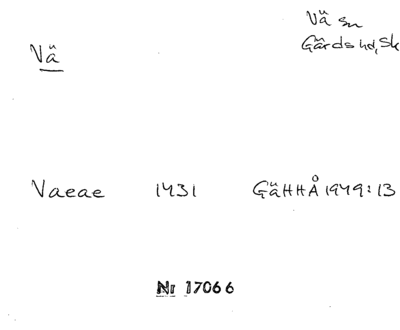 Vä sn
Gärds hd, Sk
Vä
Vaeae 1431 GäHHÅ 1949:13
Nr 17066